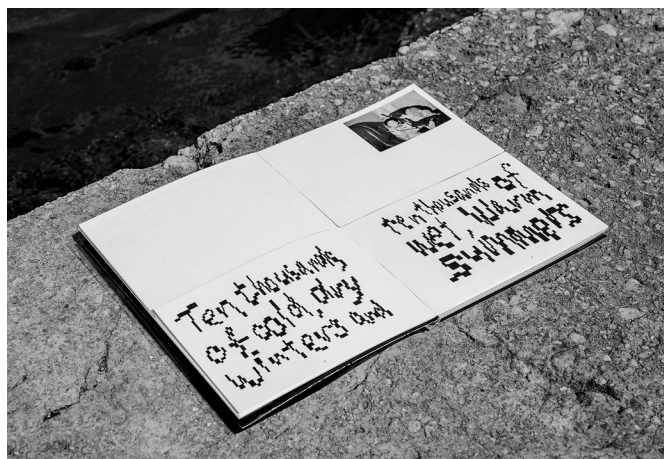 Ten thousands
of cold, dry
winters and
ten thousands of
wet, warm
summers